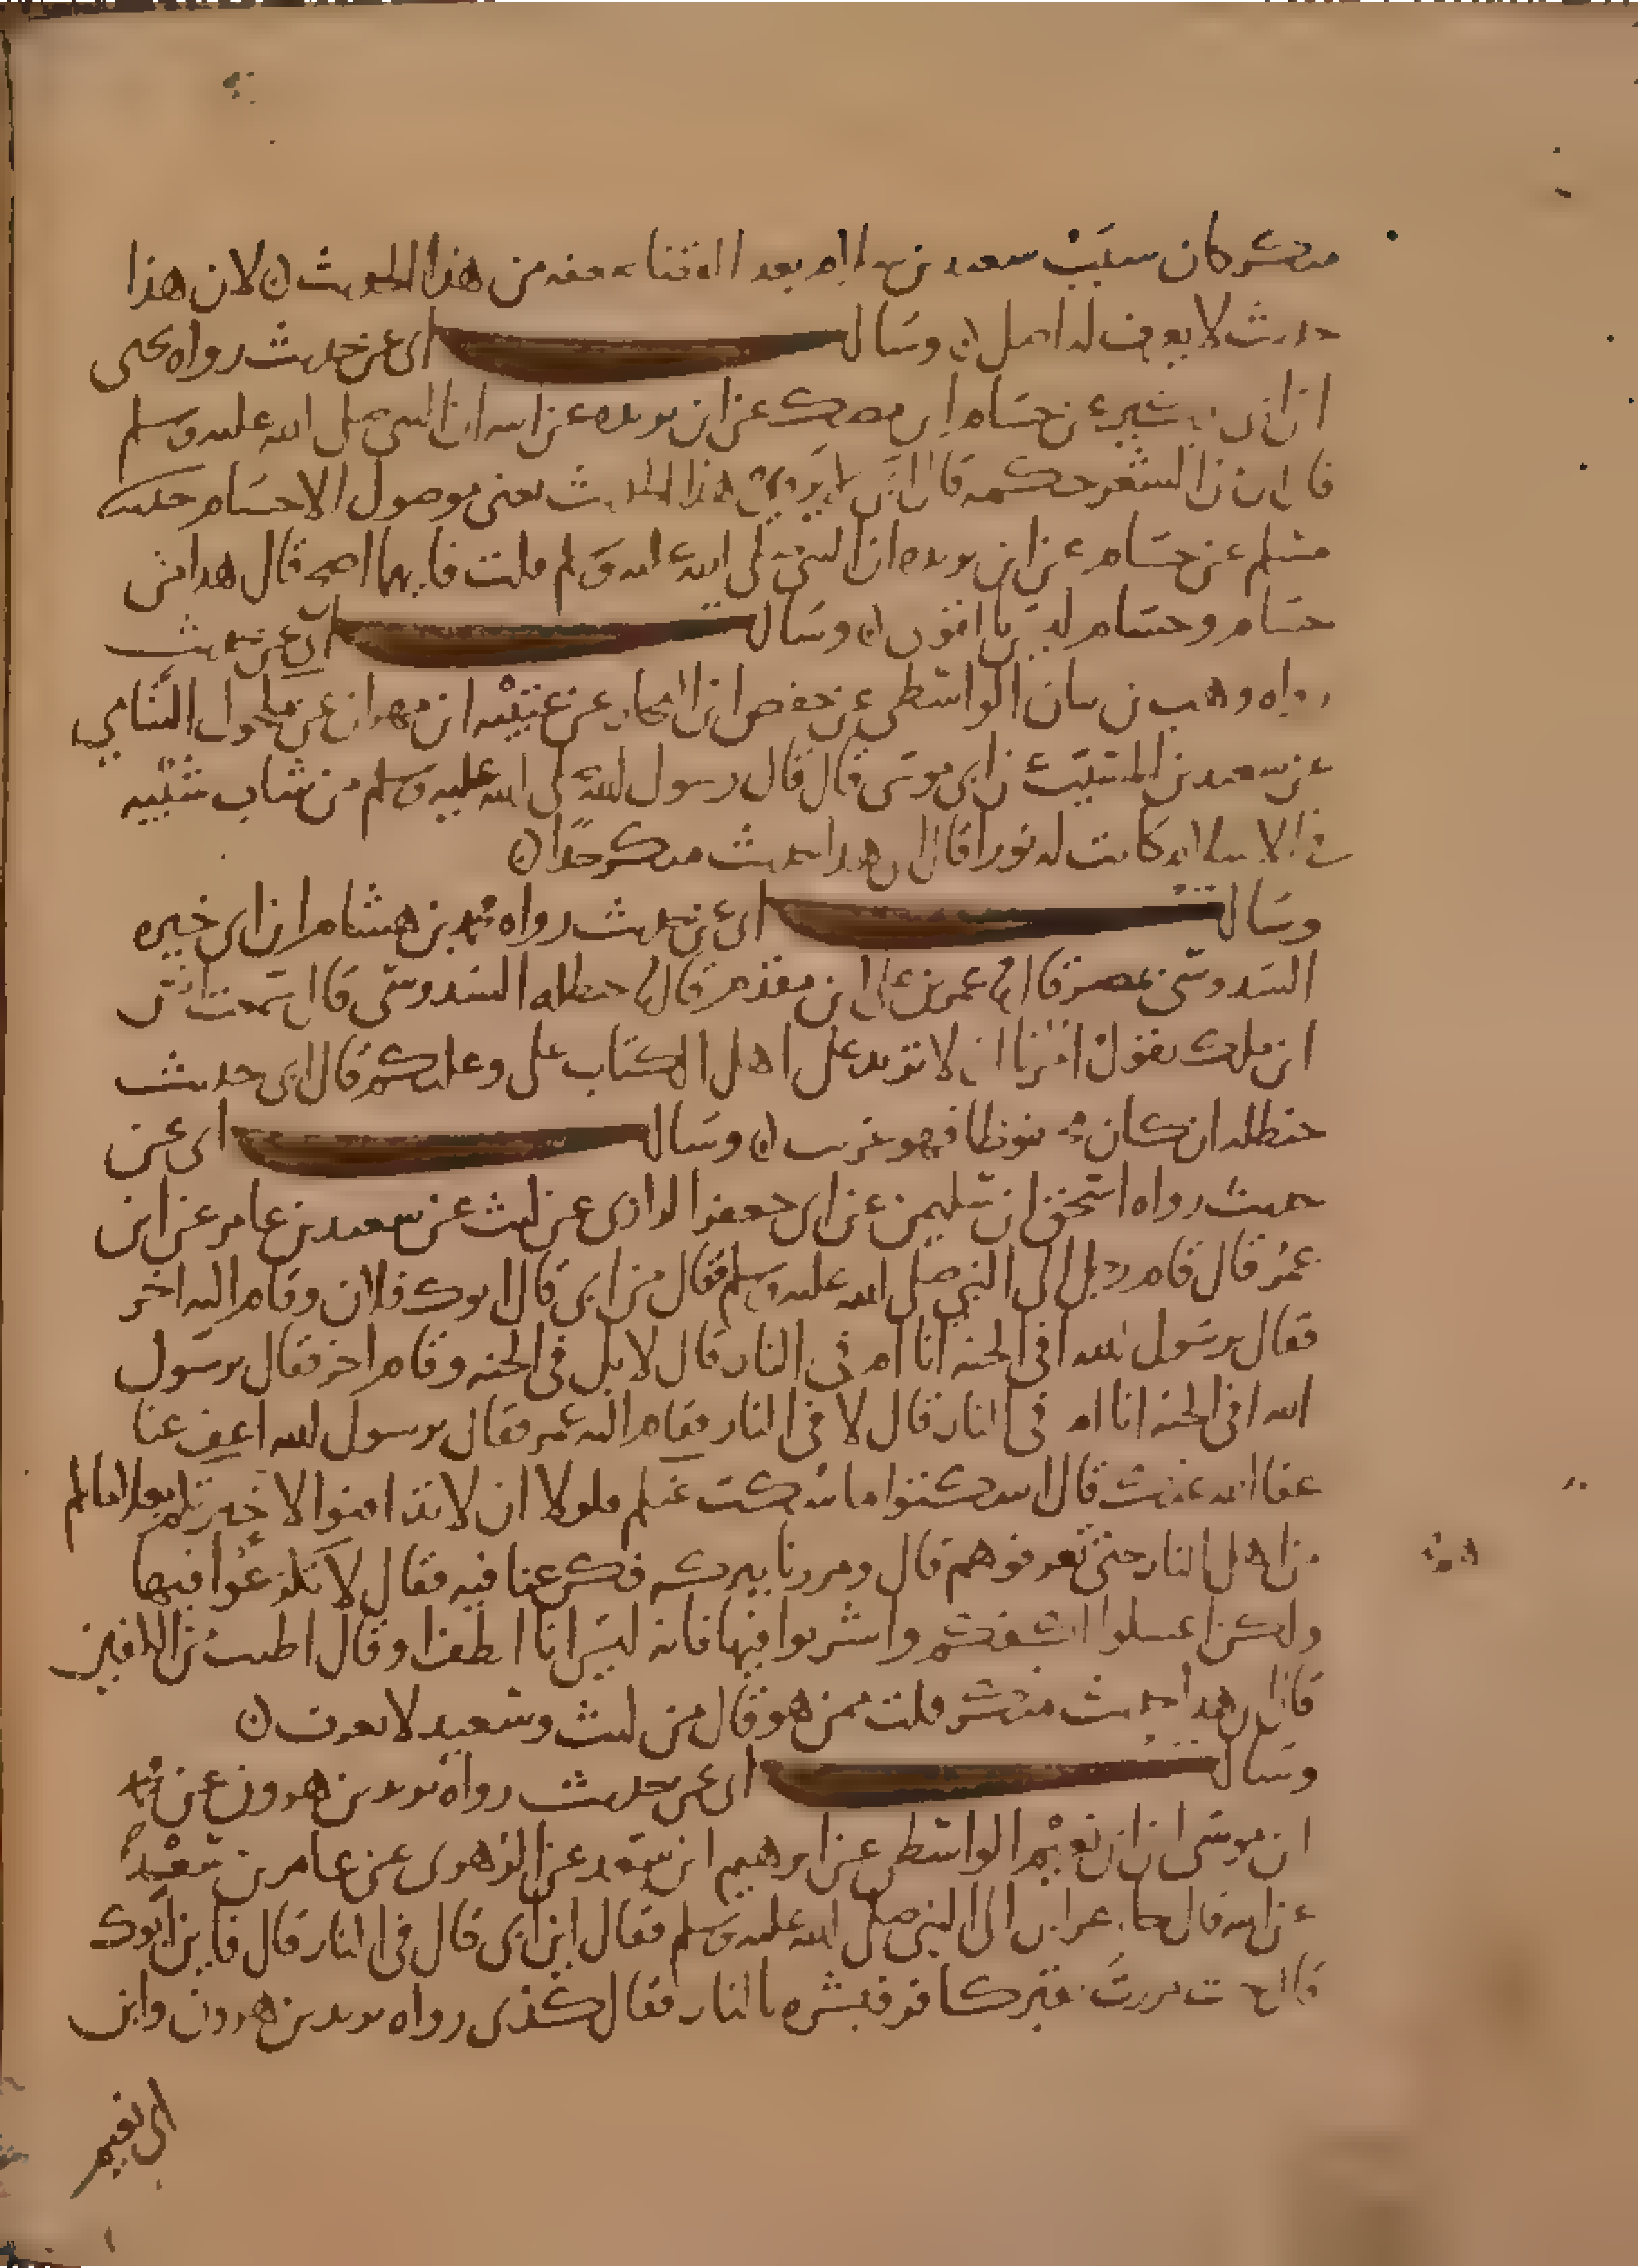 منكر كان سبب سعيد بن سلام بعد من هذا الحديث لان هذا
حديث لا يعرف له اصل وسالت ابى عن حديث رواه يحيى
ابن ابى عن حسام ابن مصك عن ابن بريده عن ابيه ان النبى صلى الله عليه وسلم
قال ان من الشعر حكمه قال ابى هذا الحديث يعنى موصول الا حسام
مسلم عن حسام عن ابن بريده ان النبى صلى الله عليه وسلم قلت فايهما اصح قال هذا من
حسام وحسام ليس بالقوى وسالت ابى عن حديث
رواه وهب بن بيان الواسطى عن حفص ابن عن عنبسه ابن مهران عن مكحول الشامي
عن سعيد بن المسيب عن ابى موسى قال قال رسول الله صلى الله عليه وسلم من شاب شيبه
فى الاسلام كانت له نورا قال ابى هذا حديث منكر جدا
وسالت ابى عن حديث رواه محمد بن هشام ابن ابى خيره
السدوسى بمصر قال عمر بن على ابن مقدم قال حنظله السدوسى قال سمعت انس
ابن ملك يقول امرنا ان لا نزيد على اهل الكتاب على وعليكم قال ابى حديث
حنظله ان كان محفوظا فهو غريب وسالت ابى عن
حديث رواه اسحق ابن سليمن عن ابى جعفر الرازى عن ليث عن سعيد بن عامر عن ابن
عمر قال قام رجل الى النبى صلى الله عليه وسلم فقال من ابى قال ابوك فلان وقام اليه اخر
فقال يرسول الله افى الجنه انا ام فى النار قال لا بل فى الجنه وقام اخر فقال يرسول
الله افى الجنه انا ام فى النار قال لا فى النار فقام اليه عمر فقال يرسول الله اعف عنا
عفا الله عنك قال اسكتوا ما سكت عنكم فلولا ان لا تدافنوا لاخبرتكم
من اهل النار حتى تعرفوهم قال ومررنا ببركه فكرعنا فيه فقال لا تكرعوا فيها
ولكن اغسلوا اكفكم واشربوا فيها فانه ليس انا انظف او قال اطيب من الكفين
قال ابى هذا حديث منكر قلت ممن هو قال من ليث وسعيد لا يعرف
وسالت ابى عن حديث رواه يزيد بن هرون عن محمد
ابن موسى ابن ابى نعيم الواسطى عن ابرهيم ابن سعد عن الزهرى عن عامر بن سعد
عن ابيه قال جا اعرابى الى النبى صلى الله عليه وسلم فقال اين ابى قال فى النار قال فاين ابوك
قال حيث مررت بقبر كافر فبشره بالنار فقال كذى رواه يزيد بن هرون وابن
ابى نعيم